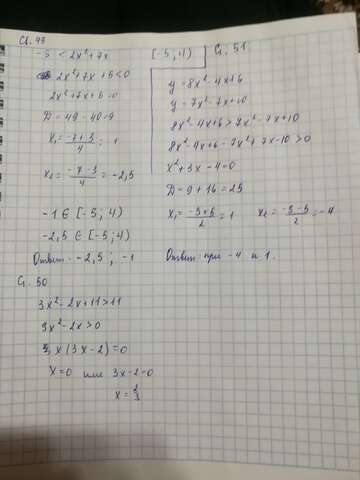 Cl. 49
-5 < 2x²+7x [-5; 4)
2x²+7x+5<0
2x²+7x+5=0
D = 49 - 40=9
x₁ = -7+3/4 = 1
x₂ = -7-3/4 = -2,5
-1 ∈ [-5; 4)
-2,5 ∈ [-5; 4)
Ответ: -2,5; -1
Cl. 50
3x²-2x+11>11
3x²-2x>0
x(3x-2)=0
x=0 или 3x-2=0
x=2/3
Cl. 51
y=8x²-4x+6
y=7x²-7x+10
8x²-4x+6>7x²-7x+10
8x²-4x+6-7x²+7x-10>0
x²+3x-4=0
D=9+16=25
x₁= -3+5/2 = 1 x₂= -3-5/2 = -4
Ответ: при -4 и 1.